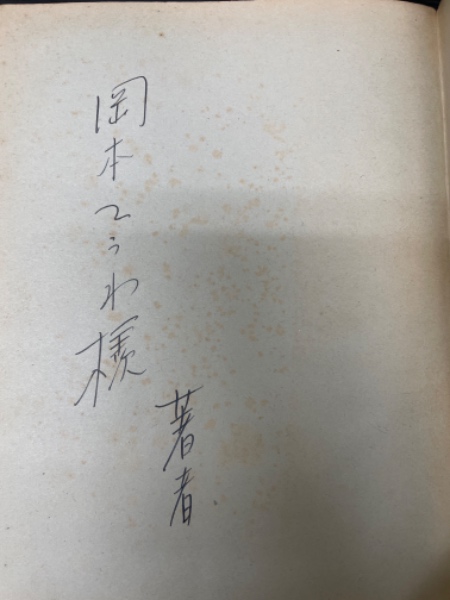 岡本てうわ様
著者